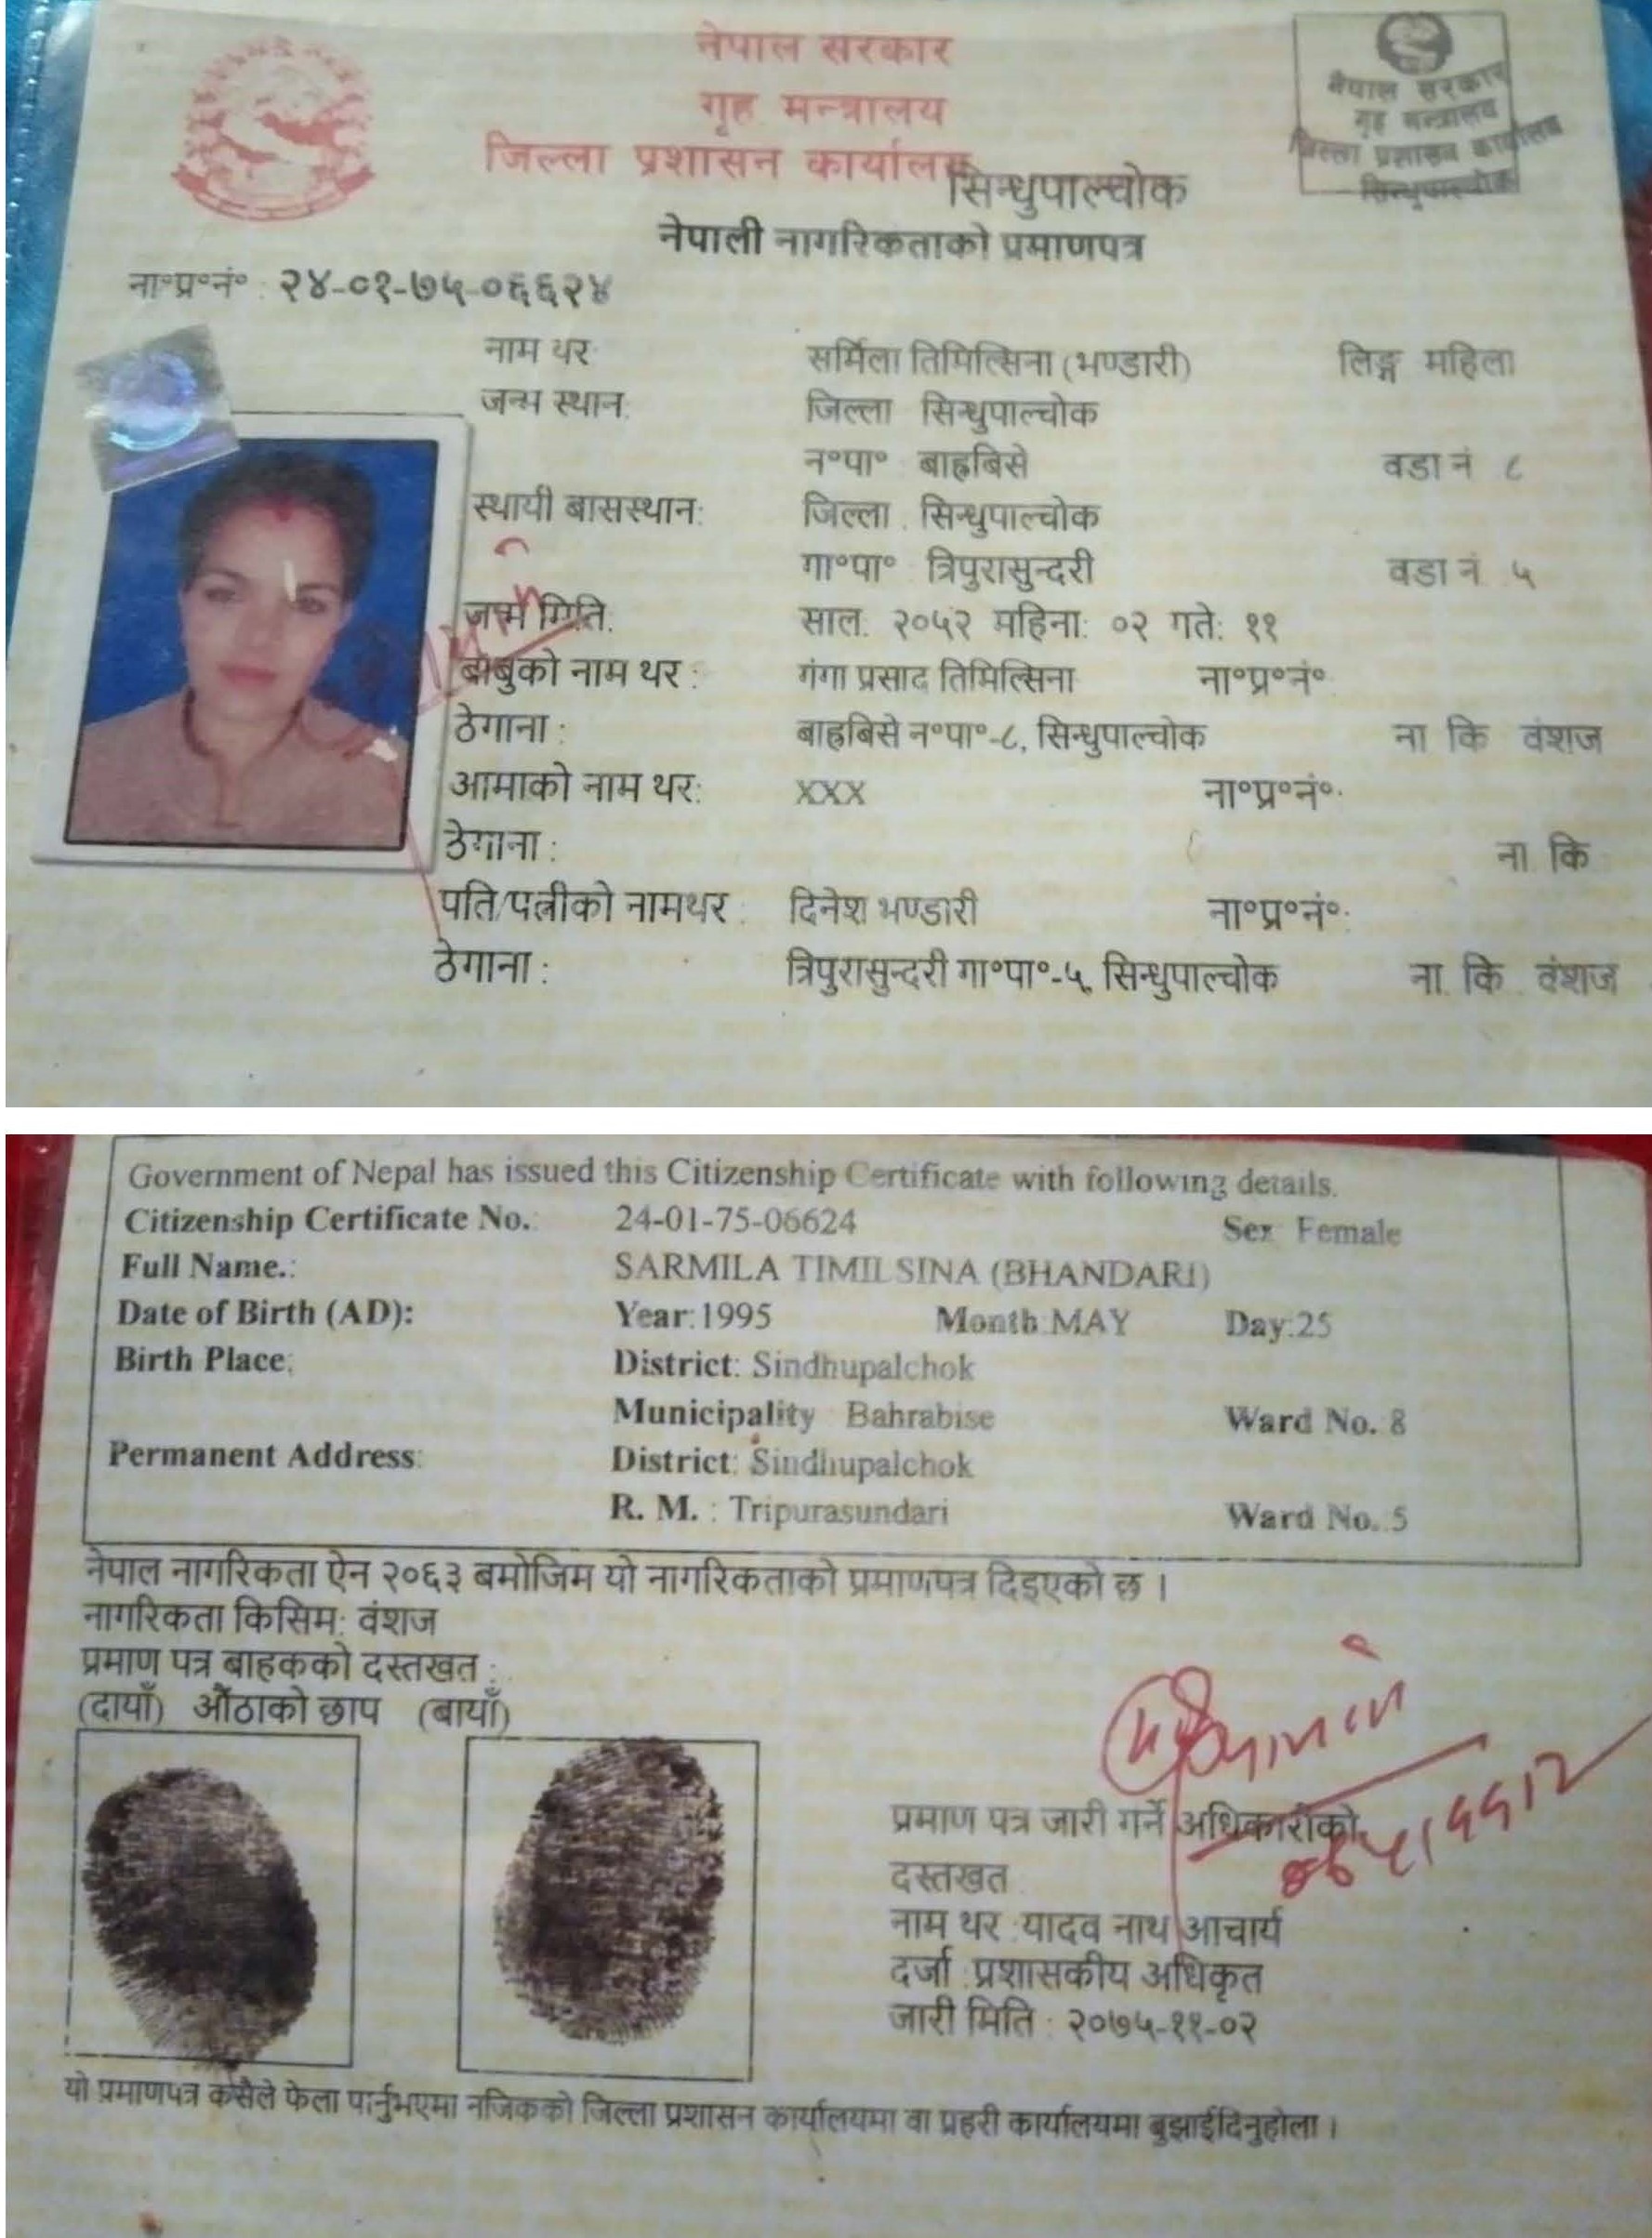 नेपाल सरकार
गृह मन्त्रालय
जिल्ला प्रशासन कार्यालय सिन्धुपाल्चोक
नेपाल सरकार
गृह मन्त्रालय
जिल्ला प्रशासन कार्यालय
सिन्धुपाल्चोक
नेपाली नागरिकताको प्रमाणपत्र
ना॰प्र॰नं॰ : २४-०१-७५-०६६२४
नाम थर सर्मिला तिमिल्सिना (भण्डारी) लिङ्ग महिला
जन्म स्थान: जिल्ला सिन्धुपाल्चोक
न॰पा॰ बाह्रबिसे वडा नं ८
स्थायी बासस्थान: जिल्ला . सिन्धुपाल्चोक
गा॰पा॰ त्रिपुरासुन्दरी वडा नं ५
जन्म मिति: साल: २०५२ महिना: ०२ गते: ११
बाबुको नाम थर : गंगा प्रसाद तिमिल्सिना ना॰प्र॰नं॰
ठेगाना : बाह्रबिसे न॰पा॰-८, सिन्धुपाल्चोक ना कि वंशज
आमाको नाम थर: XXX ना॰प्र॰नं॰.
ठेगाना : ना कि
पति/पत्नीको नामथर : दिनेश भण्डारी ना॰प्र॰नं॰:
ठेगाना : त्रिपुरासुन्दरी गा॰पा॰-५, सिन्धुपाल्चोक ना. कि . वंशज
Government of Nepal has issued this Citizenship Certificate with following details.
Citizenship Certificate No.: 24-01-75-06624 Sex Female
Full Name.: SARMILA TIMILSINA (BHANDARI)
Date of Birth (AD): Year:1995 Month:MAY Day:25
Birth Place: District: Sindhupalchok
Municipality Bahrabise Ward No. 8
Permanent Address: District: Sindhupalchok
R. M. : Tripurasundari Ward No. 5
नेपाल नागरिकता ऐन २०६३ बमोजिम यो नागरिकताको प्रमाणपत्र दिइएको छ ।
नागरिकता किसिम: वंशज
प्रमाण पत्र बाहकको दस्तखत :
(दायाँ) औंठाको छाप (बायाँ)
प्रमाण पत्र जारी गर्ने अधिकारीको
दस्तखत
नाम थर : यादव नाथ आचार्य
दर्जा : प्रशासकीय अधिकृत
जारी मिति : २०७५-११-०२
यो प्रमाणपत्र कसैले फेला पार्नुभएमा नजिकको जिल्ला प्रशासन कार्यालयमा वा प्रहरी कार्यालयमा बुझाईदिनुहोला ।